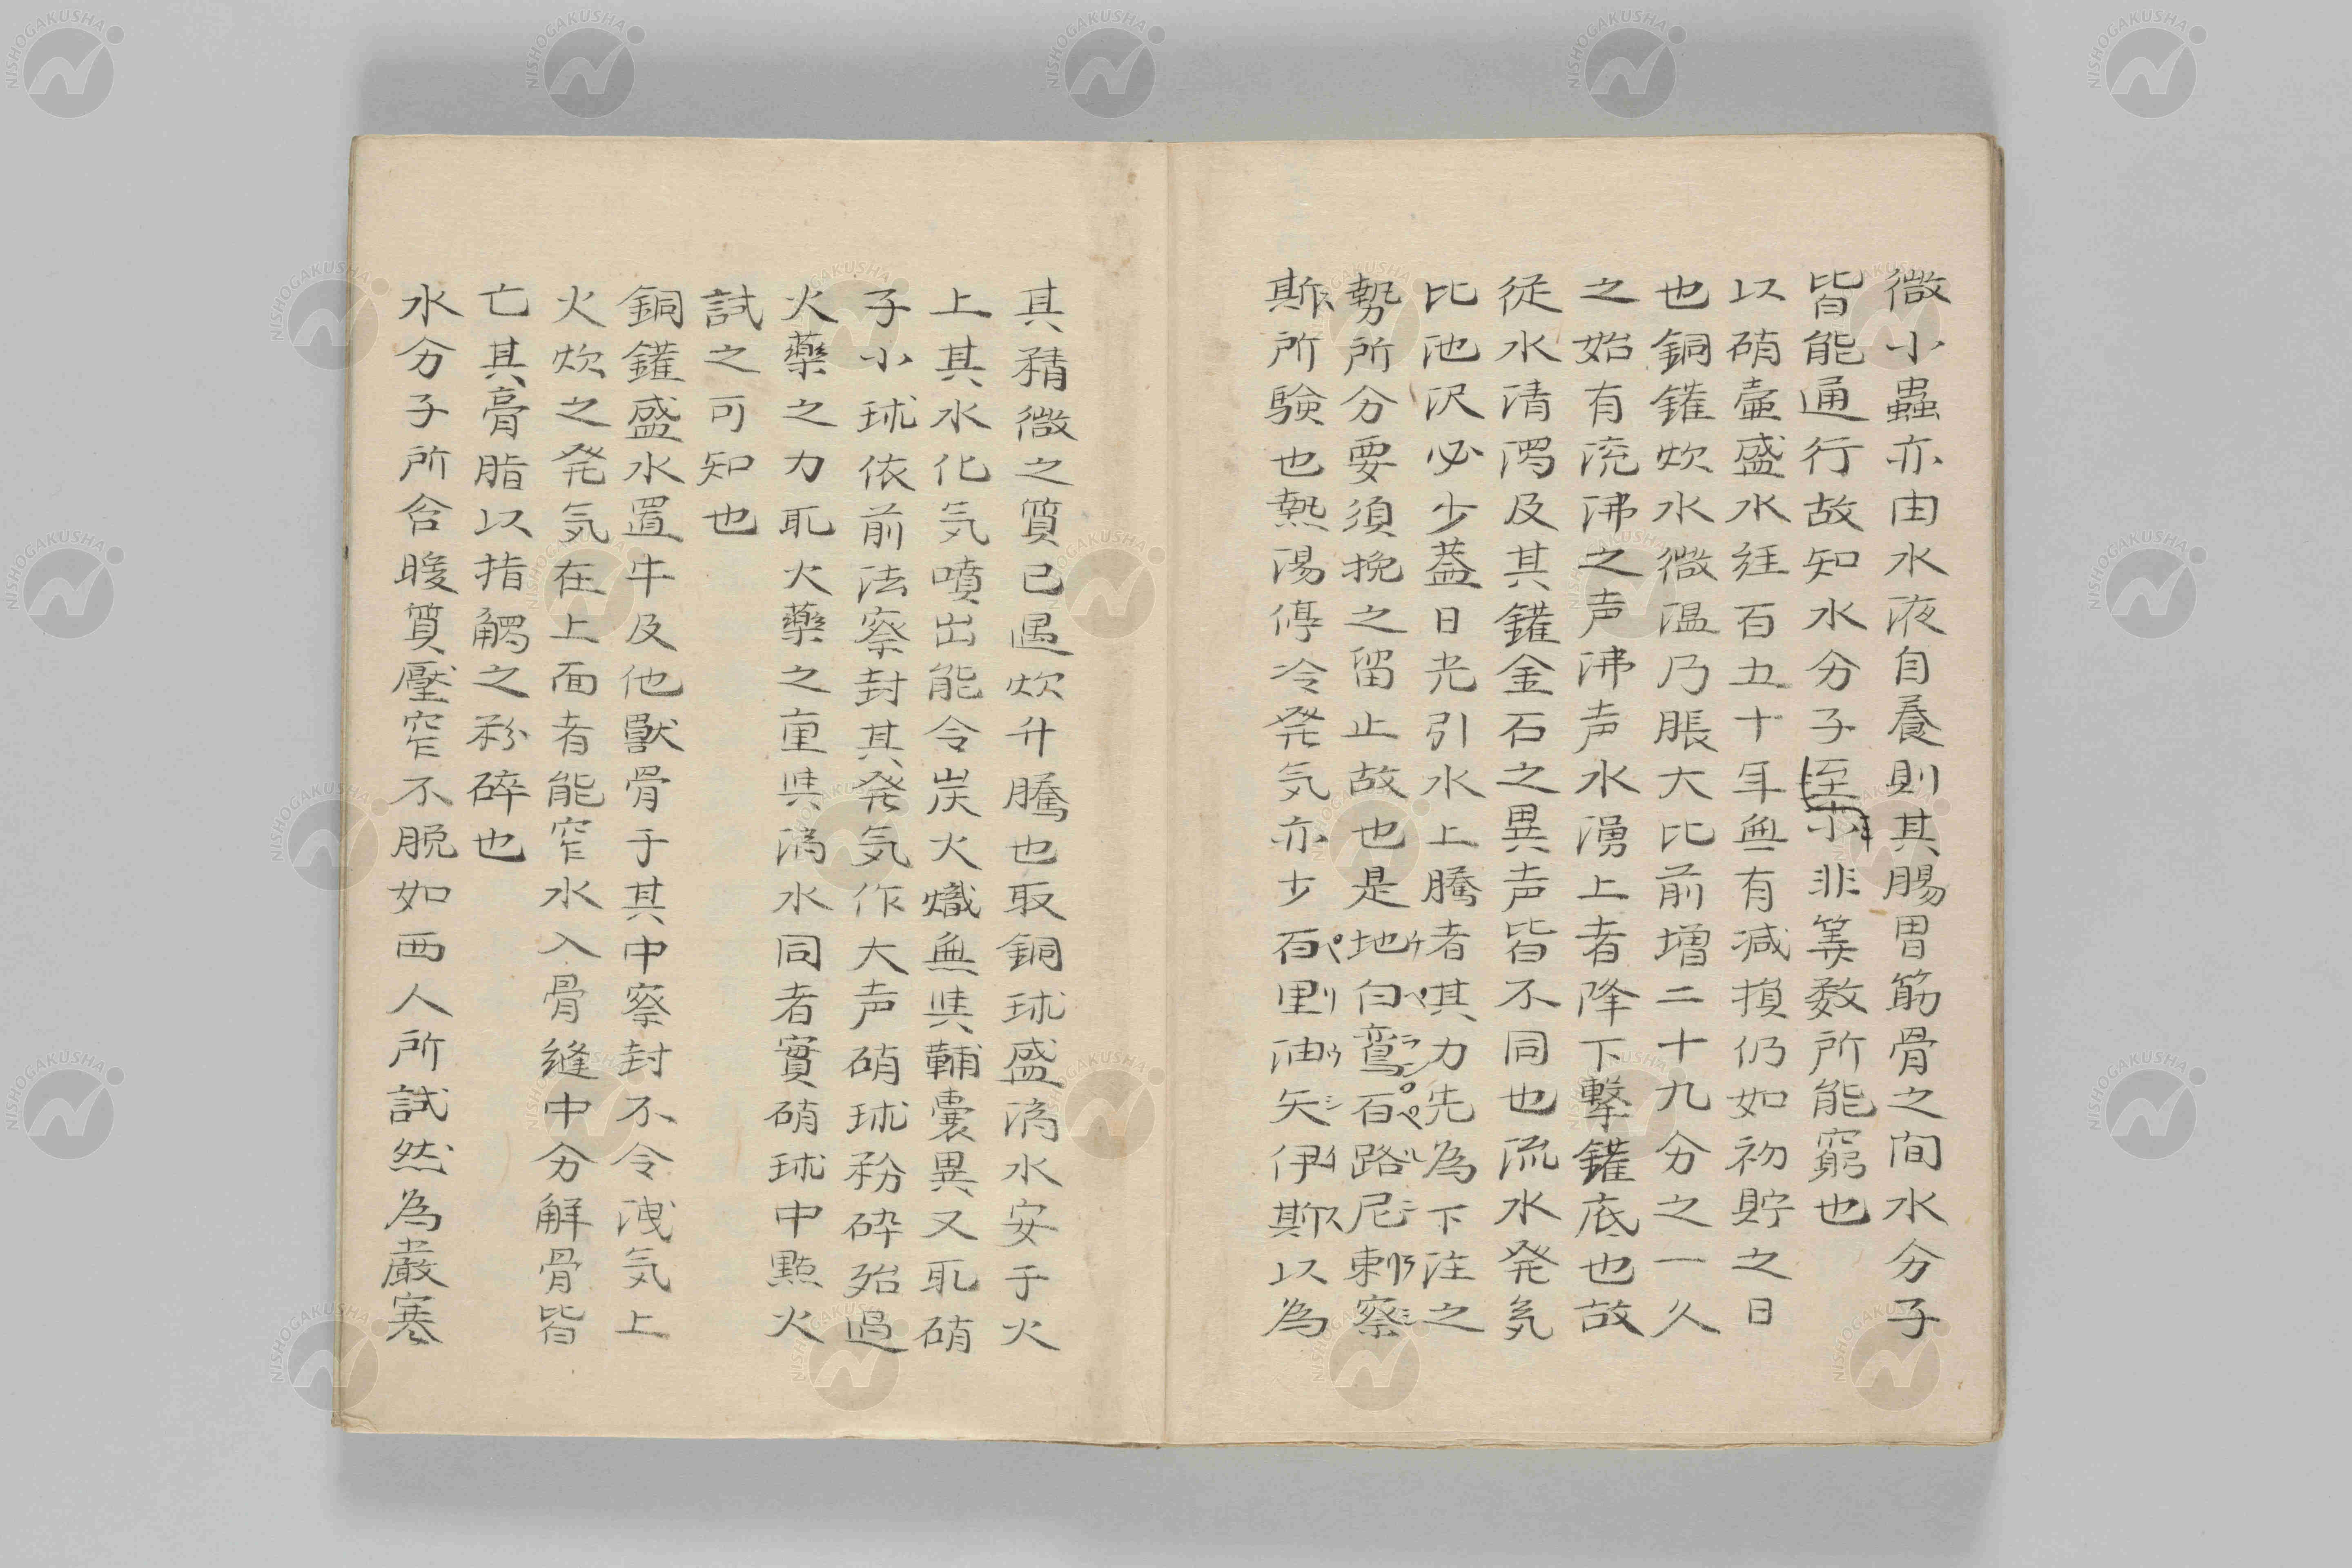 微小蟲亦由水液自養則其腸胃筋骨之間水分子
皆能通行故知水分子至小非筭数所能窮也
以硝壷盛水経百五十年無有减損仍如初貯之日
也銅鑵炊水微温乃脹大比前增二十九分之一久
之始有流沸之声沸声水湧上者降下撃鑵底也故
従水清濁及其鑵金石之異声皆不同也流水発気
比池沢必少蓋日光引水上騰者其力先為下注之
勢所分要須挽之留止故也是地白鸞百路尼刺察
斯所験也熱湯停冷発気亦少百里油矢伊斯以為
其精微之質已遇炊升騰也取銅球盛満水安于火
上其水化気噴出能令炭火熾無異鞴囊異又耴硝
子小球依前法察封其発気作大声硝球粉砕殆過
火藥之力耴火藥之重与満水同者實硝球中點火
試之可知也
銅鑵盛水置牛及他獣骨于其中察封不令洩気上
火炊之発気在上面者能窄水入骨縫中分解骨皆
亡其膏脂以指觸之粉碎也
水分子所含暖質壓窄不脱如西人所試然為嚴寒
ケ
ペ
ラン
ペ
ル
ニ
ラ
ミ
ス
ペ
リ
ウ
シ
イ
ス
NISHOGAKUSHA